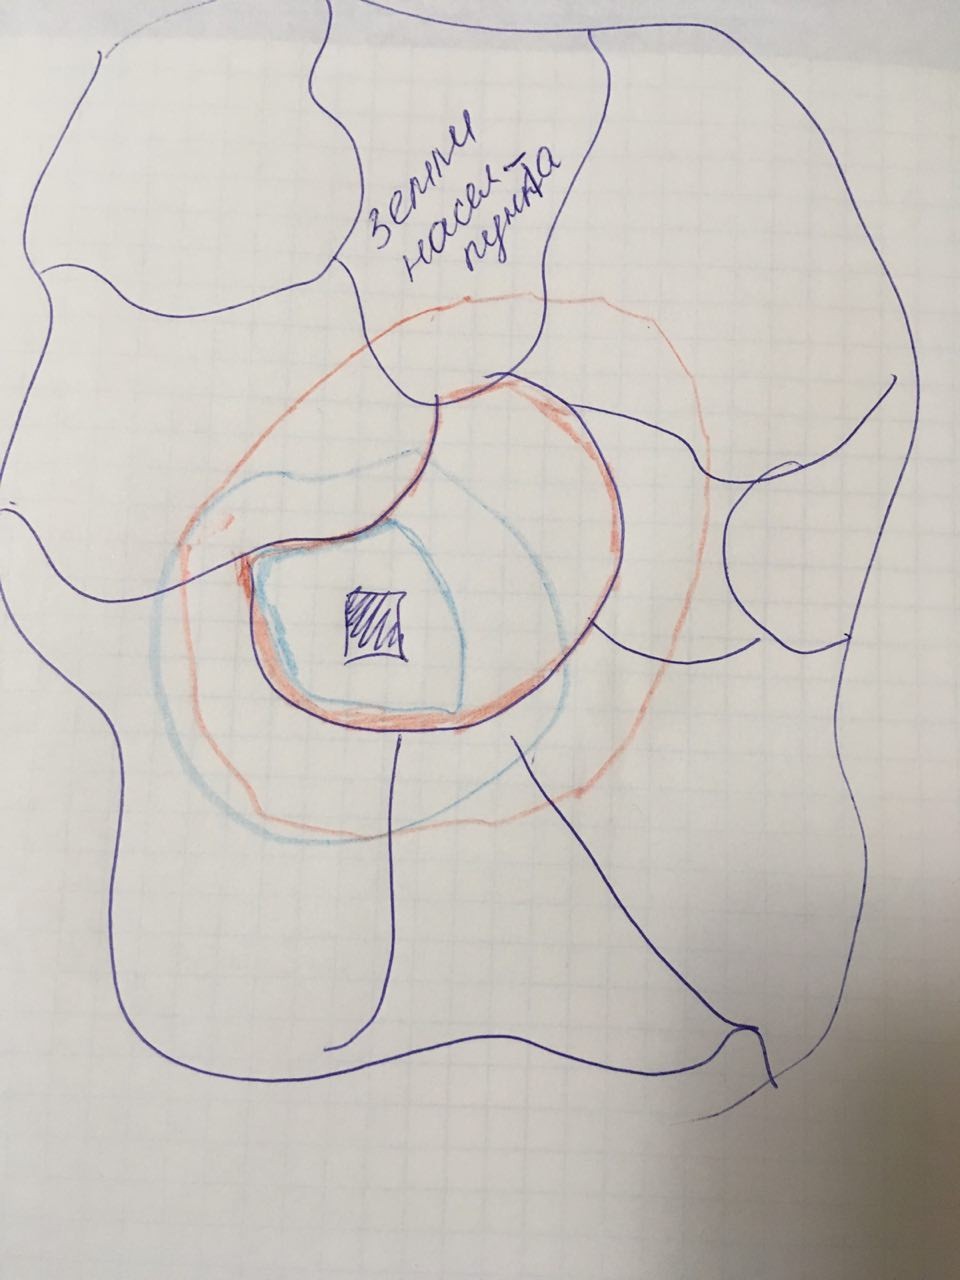 земли
насел-
пункта